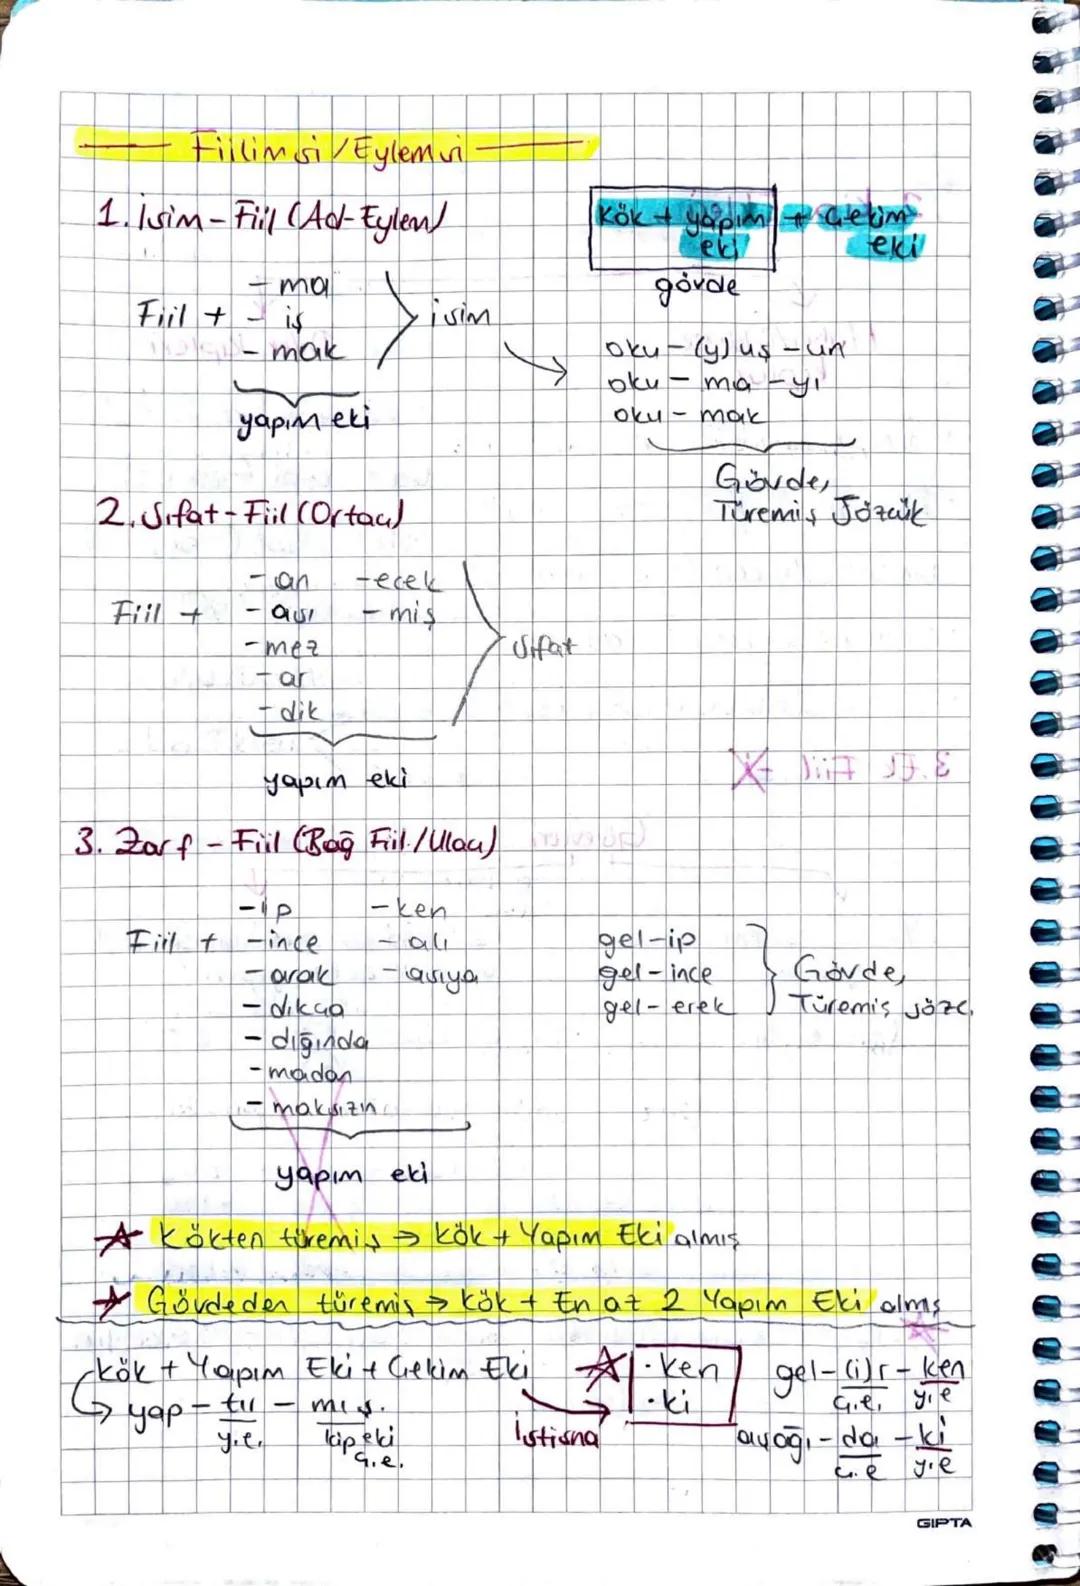 Fiilimsi / Eylemsi
1. İsim - Fiil (Ad-Eylem)
Kök + yapım eki + Çekim eki
gövde
Fiil +
- ma
- iş
- mak
isim
yapım eki
oku - (y) uş - un
oku - ma - yı
oku - mak
Gövde,
Türemiş Sözcük
2. Sıfat - Fiil (Ortaç)
Fiil +
- an -ecek
- ası - miş
- mez
- ar
- dik
Sıfat
yapım eki
3. Zarf - Fiil (Bağ Fiil / Ulaç)
Fiil +
- ip - ken
- ince - alı
- arak - asıya
- dıkça
- dığında
- madan
- maksızın
yapım eki
gel - ip
gel - ince
gel - erek
Gövde,
Türemiş sözc.
Kökten türemiş → Kök + Yapım Eki almış
Gövdeden türemiş → Kök + En az 2 Yapım Eki almış
Kök + Yapım Eki + Çekim Eki
yap - tır - mış.
y.e. kip eki
ç.e.
İstisna
· ken
· ki
gel - (i)r - ken
ç.e. y.e
aşağı - da - ki
ç.e y.e
GIPTA